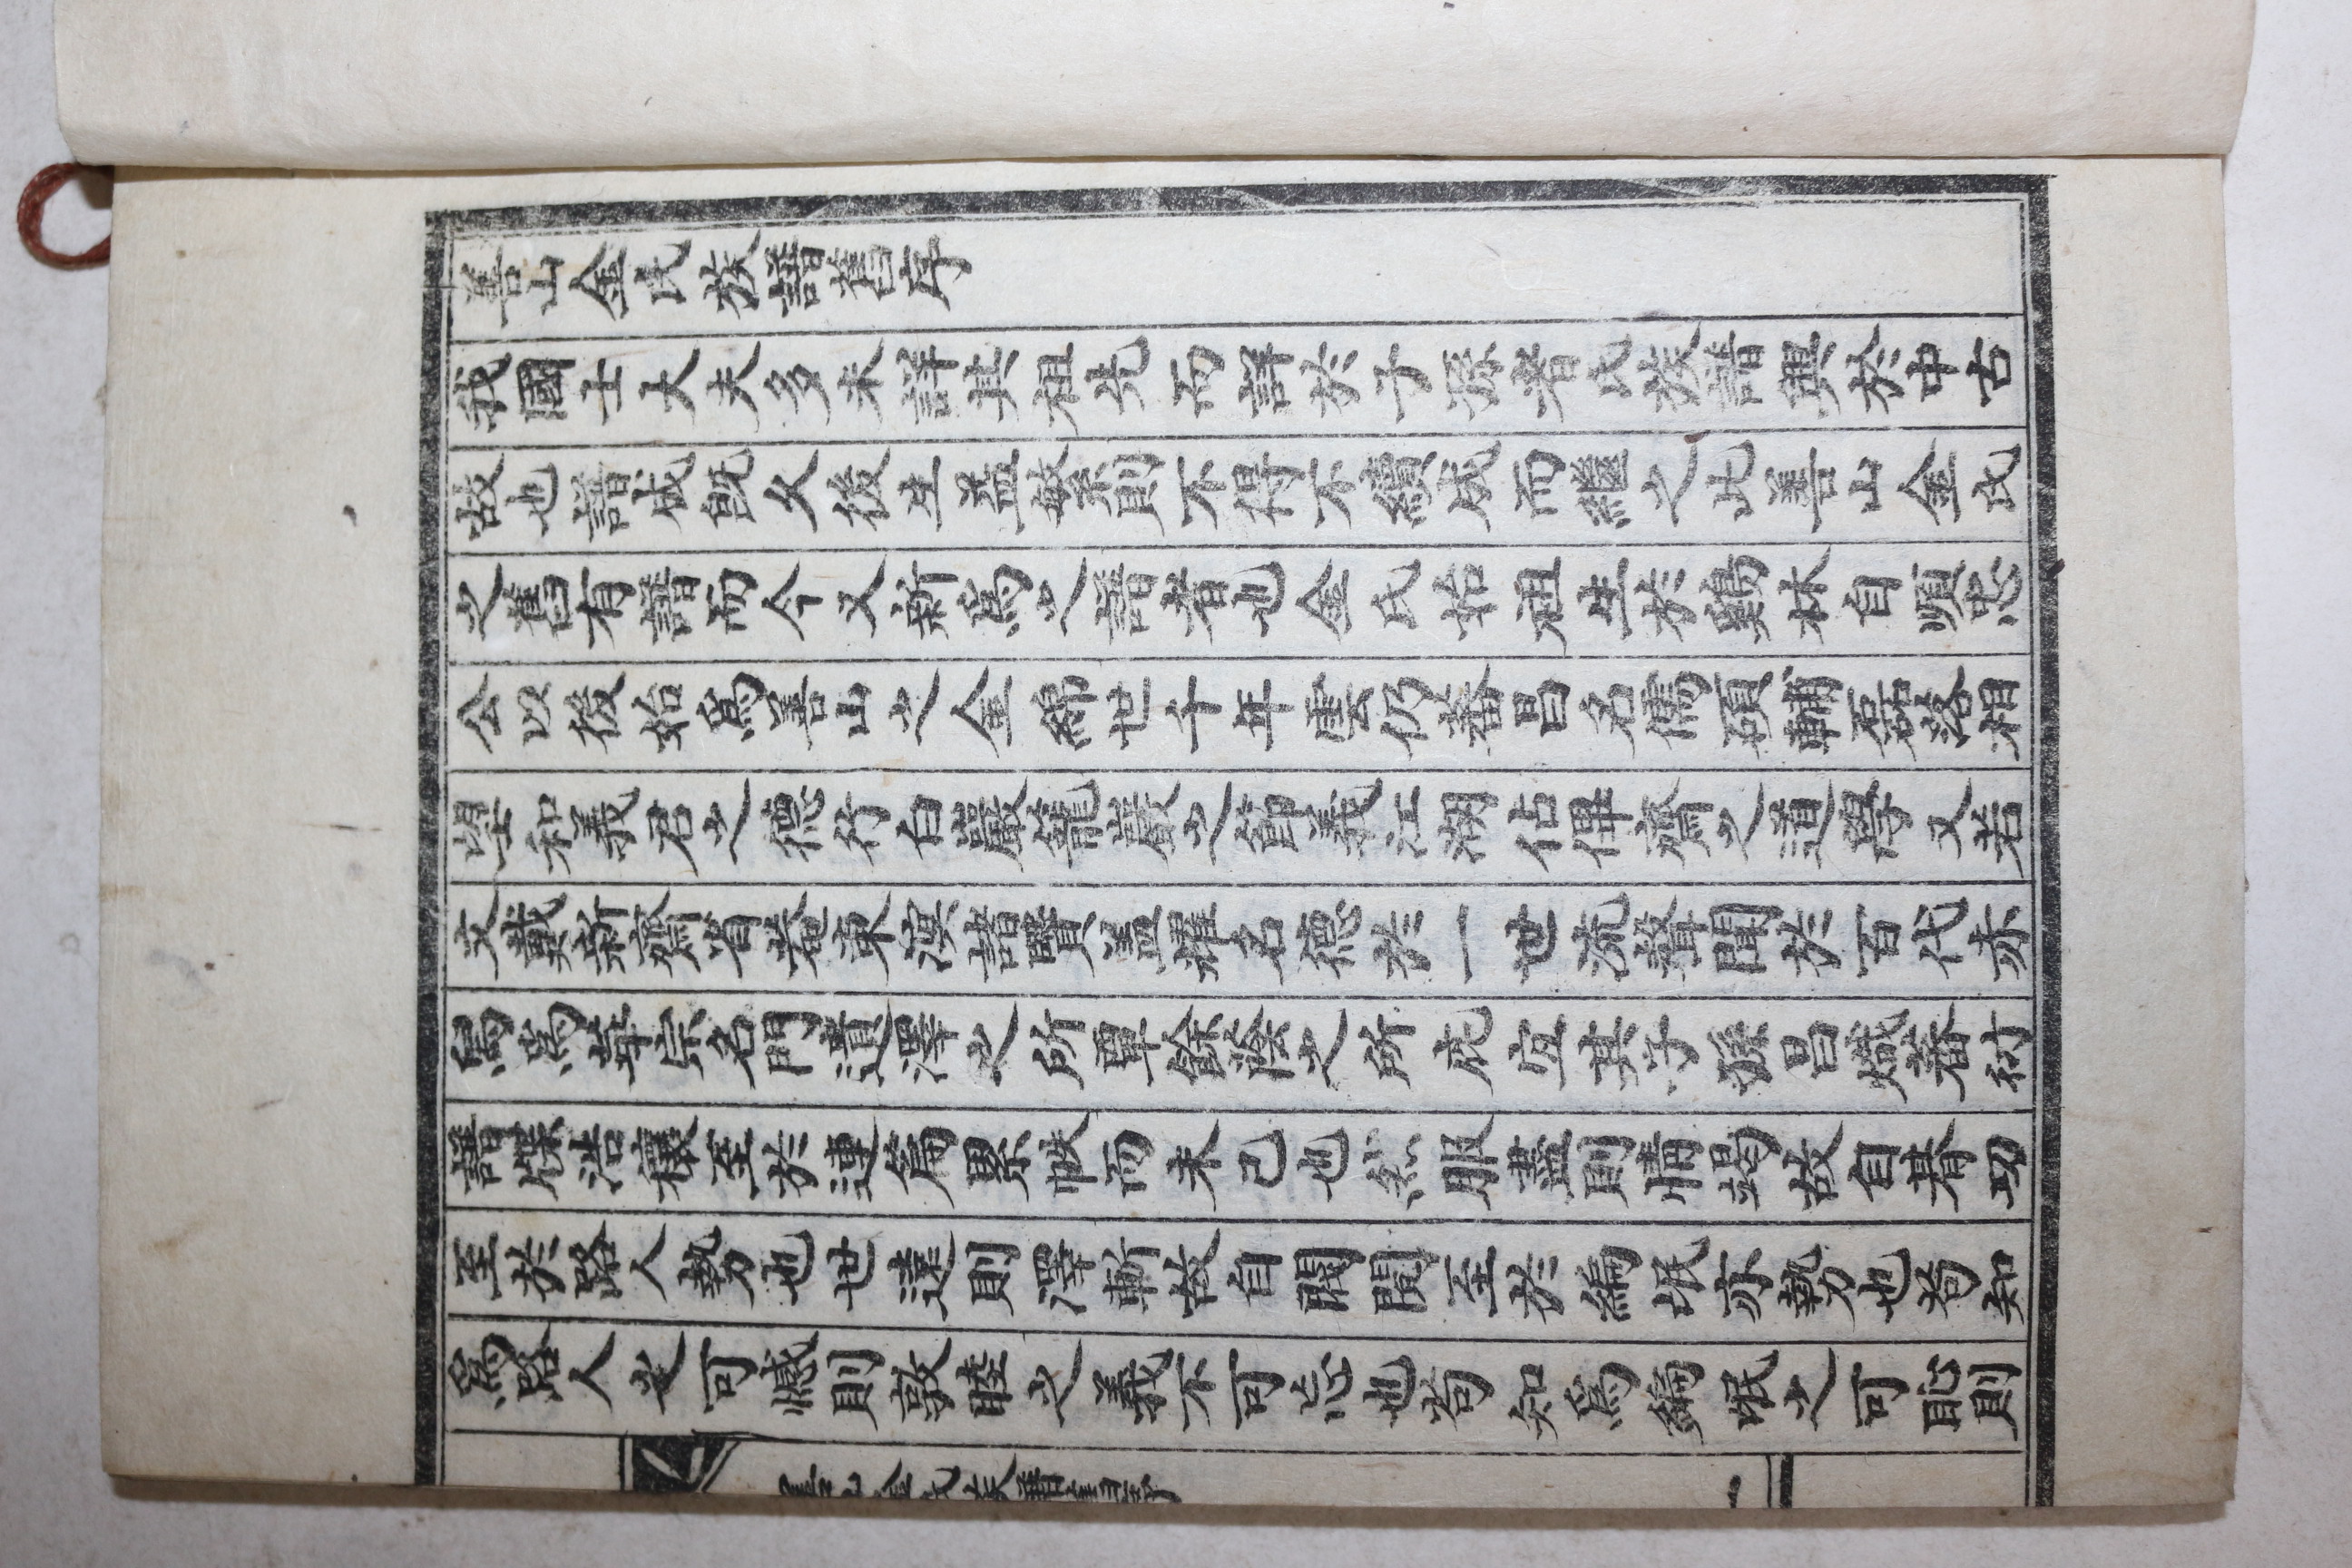 善山金氏族譜舊序
我國士大夫多未詳其祖先而詳於子孫者氏族譜興於中古
故也譜成旣久後生益繁則不得不續成而繼之此善山金氏
之舊有譜而今又新爲之譜者也金氏始祖生於鷄林自順忠
公以後始爲善山之金綿世千年雲仍蕃昌名儒碩輔磊落相
望和義君之德行白巖籠巖之節義江湖佔畢齋之道學又若
文戴新齋省菴東溟諸賢並耀名德於一世流聲聞於百代亦
爲爲華宗名門遺澤之所覃餘蔭之所庇宜其子孫昌熾蕃衍
譜牒浩穰至於連篇累帙而未已也然服盡則情竭故自朞功
至於路人勢也世遠則澤斬故自閥閱至於編氓亦勢也苟知
爲路人之可慽則敦睦之義不可忘也苟知爲編氓之可恥則
善山金氏族譜舊序 一